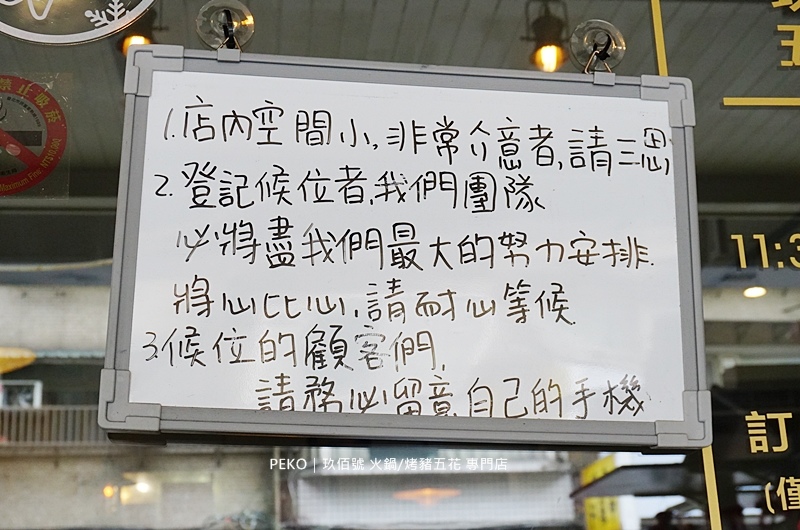 1.店內空間小,非常介意者,請三思
2.登記候位者,我們團隊
必將盡我們最大的努力安排.
將心比心,請耐心等候.
3.候位的顧客們,
請務必留意自己的手機
禁止吸菸
Maximum Fine: NT$10,000
五
11:3
訂
(僅
PEKO | 玖佰號 火鍋/烤豬五花 專門店